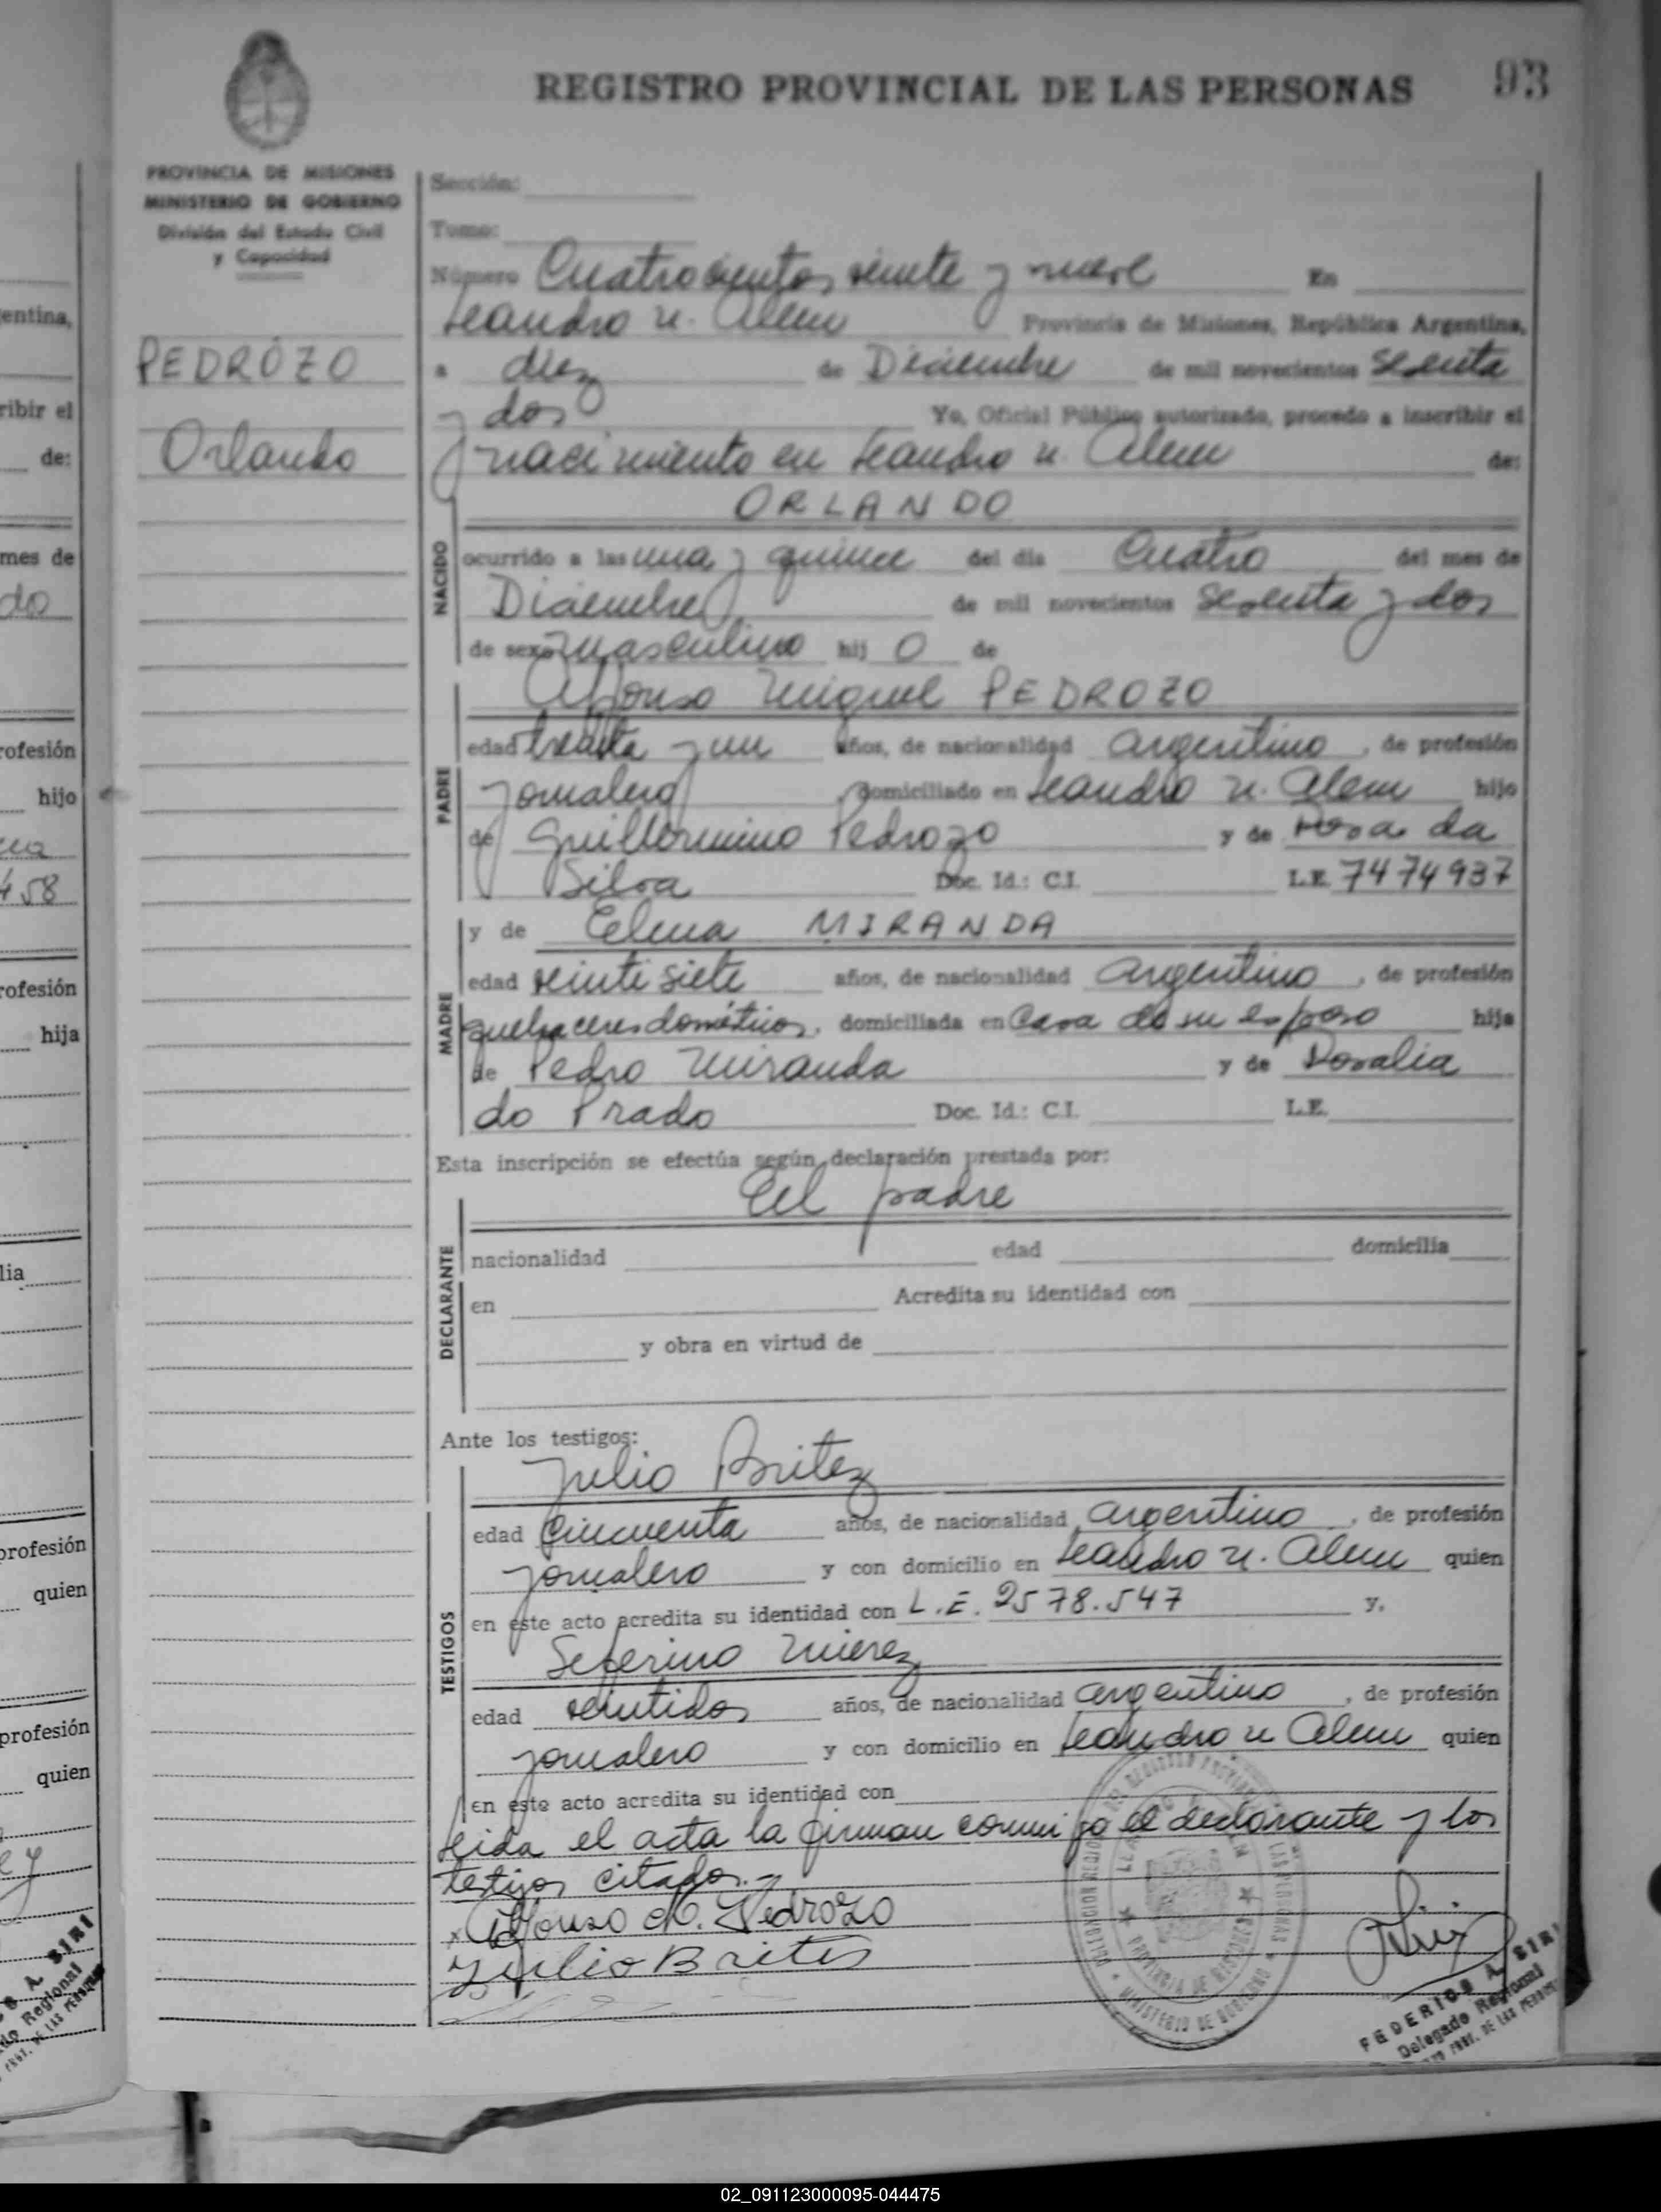 REGISTRO PROVINCIAL DE LAS PERSONAS 93
PROVINCIA DE MISIONES
MINISTERIO DE GOBIERNO
División del Estado Civil
y Capacidad
PEDROZO
Orlando
Sección:
Tomo:
Número Cuatrocientos veinte y nueve En
Leandro N. Alem Provincia de Misiones, República Argentina,
a diez de Diciembre de mil novecientos sesenta
y dos Yo, Oficial Público autorizado, procedo a inscribir el
nacimiento en Leandro N. Alem de:
ORLANDO
NACIDO
ocurrido a las una y quince del día Cuatro del mes de
Diciembre de mil novecientos sesenta y dos
de sexo masculino hij o de
Alfonso Miguel PEDROZO
PADRE
edad treinta y un años, de nacionalidad argentino, de profesión
jornalero domiciliado en Leandro N. Alem hijo
de Guillermino Pedrozo y de Rosa da
Silva Doc. Id.: C.I. L.E. 7474937
y de Elena MIRANDA
MADRE
edad veinti siete años, de nacionalidad argentino, de profesión
quehaceres domésticos, domiciliada en Casa de su esposo hija
de Pedro Miranda y de Rosalia
do Prado Doc. Id.: C.I. L.E.
Esta inscripción se efectúa según declaración prestada por:
El padre
DECLARANTE
nacionalidad edad domicilia
en Acredita su identidad con
y obra en virtud de
Ante los testigos:
Julio Britez
TESTIGOS
edad Cincuenta años, de nacionalidad argentino, de profesión
jornalero y con domicilio en Leandro N. Alem quien
en este acto acredita su identidad con L.E. 2578.547 y.
Seferino Mierez
edad veintidos años, de nacionalidad argentino, de profesión
jornalero y con domicilio en Leandro N Alem quien
en este acto acredita su identidad con
Leida el acta la firman conmigo el declarante y los
testigos citados.-
x Alfonso M. Pedrozo
Julio Brites
FEDERICO A. SIRI
Delegado Regional
PROV. DE LAS PERSONAS
02_091123000095-044475